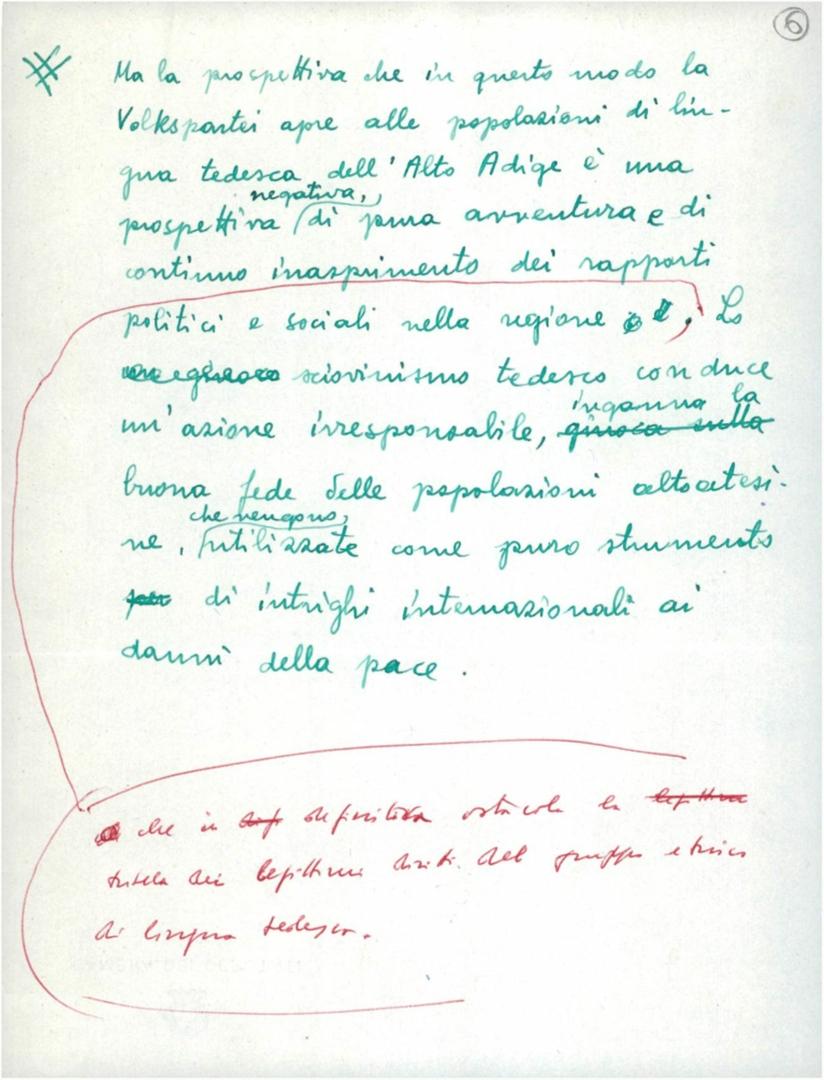 6
Ma la prospettiva che in questo modo la
Volkspartei apre alle popolazioni di lin-
gua tedesca dell'Alto Adige è una
negativa,
prospettiva di pura avventura e di
continuo inasprimento dei rapporti
politici e sociali nella regione. Lo
sciovinismo tedesco conduce
inganna la
un'azione irresponsabile, giuoca sulla
buona fede delle popolazioni altoatesi-
che vengono,
ne, utilizzate come puro strumento
per di intrighi internazionali ai
danni della pace.
che in definitiva ostacola la legittima
tutela dei legittimi diritti del gruppo etnico
di lingua tedesca.